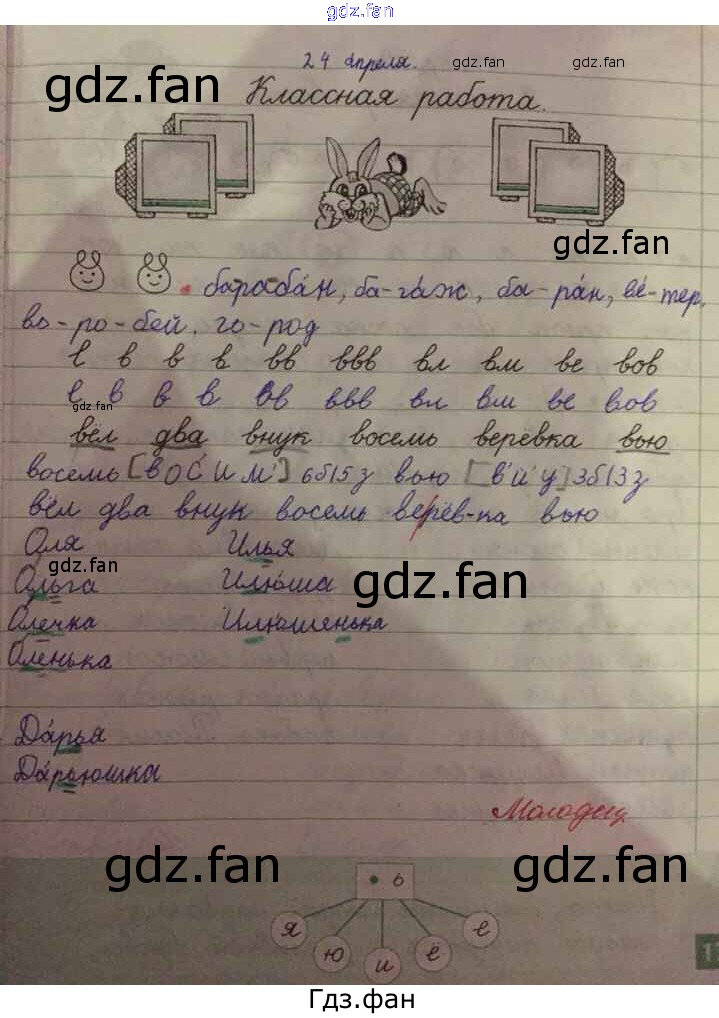 gdz.fan
24 апреля.
gdz.fan
gdz.fan
Классная работа.
gdz.fan
барабан, ба-гаж, ба-ран, ве-тер,
во-ро-бей, го-род
в в в вв ввв вл вм ве вов
gdz.fan
в в в вв ввв вл вм ве вов
вёл два внук восемь верёвка вью
восемь [вОС'ИМ'] 6б15з вью [в'й'у] 3б13з
вёл два внук восемь верёв-ка вью
Оля Илья
gdz.fan
Ольга Илюша
gdz.fan
Олечка Илюшенька
Оленька
Дарья
Дарьюшка
Молодец
gdz.fan
gdz.fan
ь
я ю и ё е
1
Гдз.фан